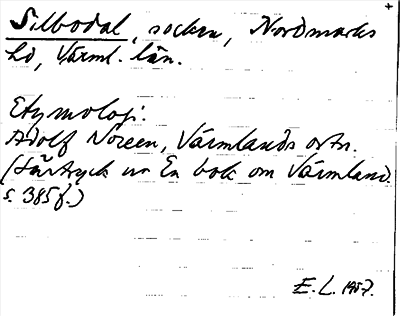 Silbodal, socken, Nordmarks
hd, Värml. län.
Etymologi:
Adolf Noreen, Värmlands ortn.
(Särtryck ur En bok om Värmland.
s. 385 f.)
E. L. 1957.